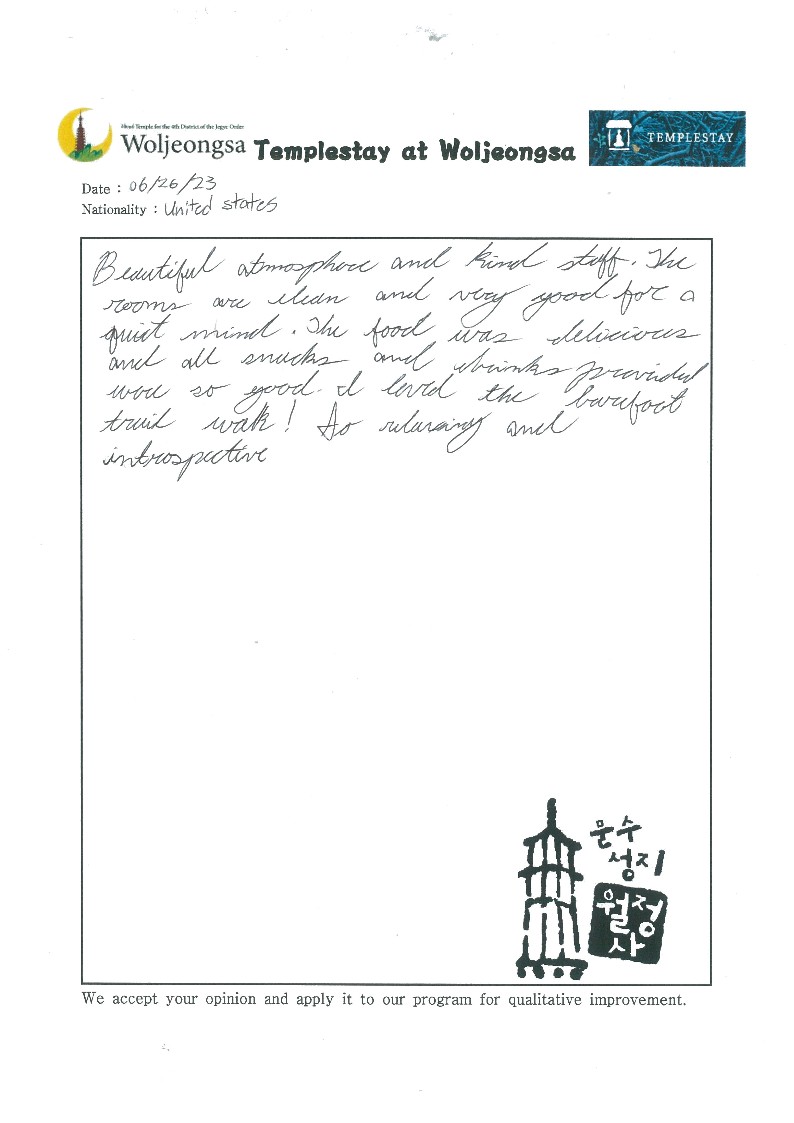 Head Temple for the 4th District of the Jogye Order
Woljeongsa Templestay at Woljeongsa
TEMPLESTAY
Date : 06/26/23
Nationality : United states
Beautiful atmosphere and kind staff. The
rooms are clean and very good for a
quiet mind. The food was delicious
and all snacks and drinks provided
were so good. I loved the barefoot
trail walk! So relaxing and
introspective
문수
성지
월정
사
We accept your opinion and apply it to our program for qualitative improvement.